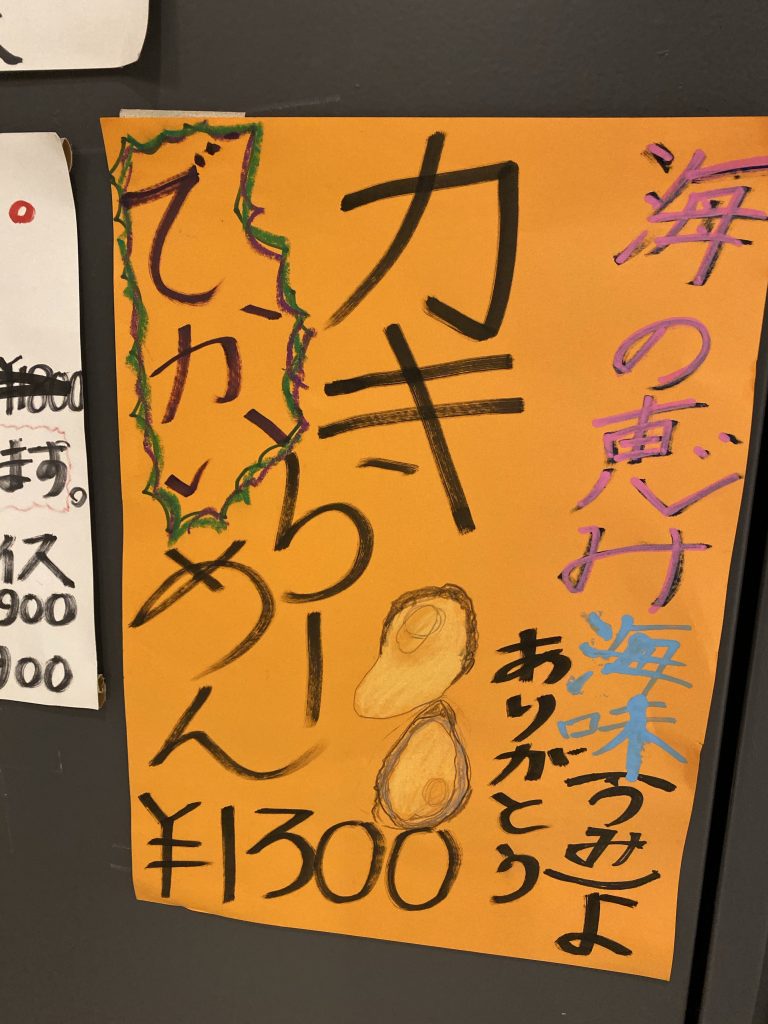 海の恵み
海味(うみ)よ
ありがとう
カキ
らーめん
でかい
¥1300
ます。
イス
900
900